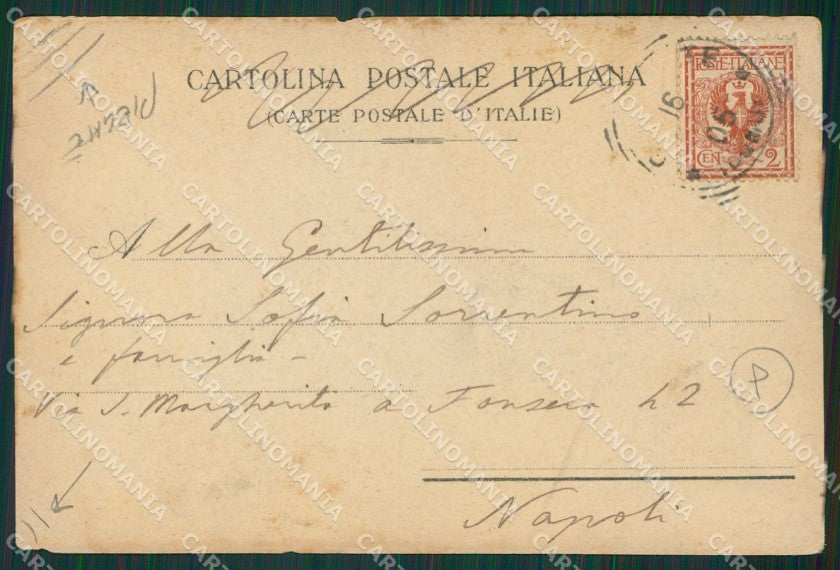 CARTOLINA POSTALE ITALIANA
(CARTE POSTALE D'ITALIE)
POSTE ITALIANE
CEN 2
16
05
Alla Gentilissima
Signora Sofia Sorrentino
e famiglia -
Via S. Margherita a Fonseca 42
Napoli
CARTOLINOMANIA